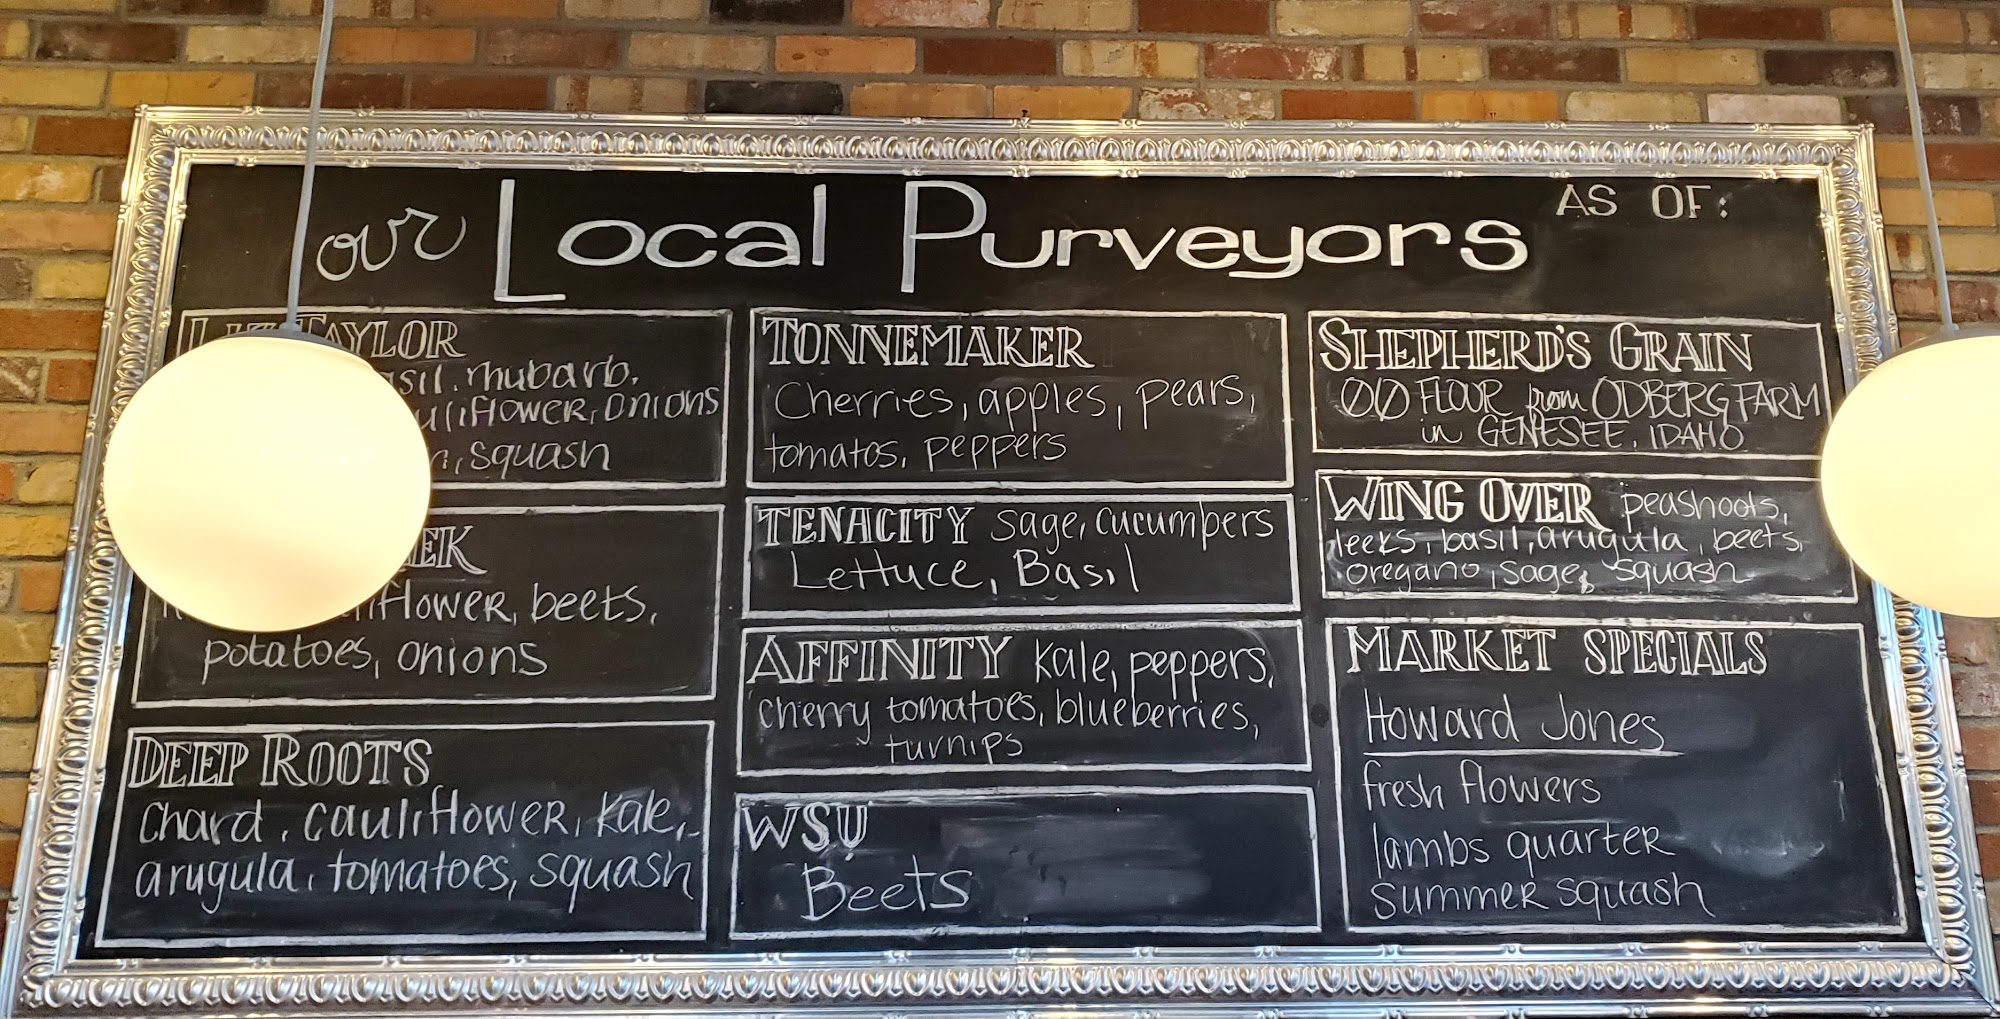 our Local Purveyors
AS OF:
TAYLOR
rhubarb,
onions
squash
beets,
potatoes, onions
DEEP ROOTS
Chard, cauliflower, kale,
arugula, tomatoes, squash
TONNEMAKER
Cherries, apples, pears,
tomatos, peppers
TENACITY sage, cucumbers
Lettuce, Basil
AFFINITY kale, peppers,
cherry tomatoes, blueberries,
turnips
WSU
Beets
SHEPHERD'S GRAIN
00 FLOUR from ODBERG FARM
in GENESEE, IDAHO
WING OVER peashoots,
leeks, basil, arugula, beets,
oregano, sage, squash
MARKET SPECIALS
Howard Jones
fresh flowers
lambs quarter
summer squash